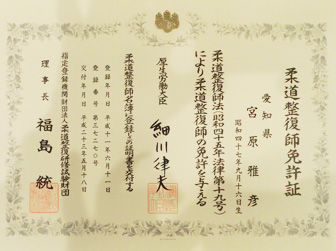 柔道整復師免許証
愛知県
宮原雅彦
昭和四十七年九月十六日生
柔道整復師法(昭和四十五年法律第十九号)
により柔道整復師の免許を与える
厚生労働大臣
細川律夫
柔道整復師名簿に登録したので証明書を交付する
登録年月日 平成十一年六月十一日
登録番号 第三七二七〇号
交付年月日 平成二十三年五月十八日
指定登録機関財団法人柔道整復研修試験財団
理事長 福島統